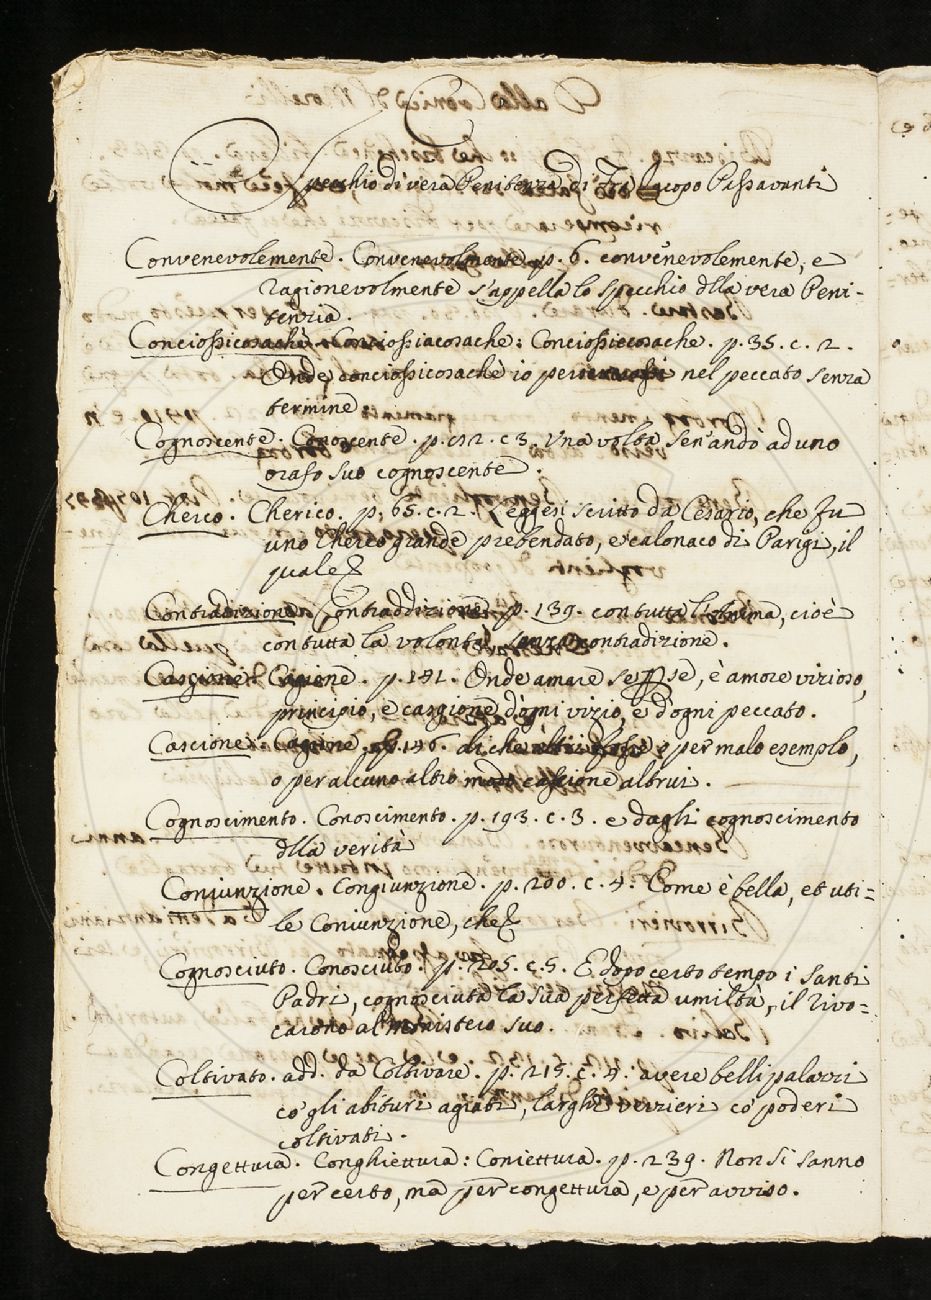 Specchio di vera Penitenza di Fra Iacopo Passavanti
Convenevolemente. Convenevolmente p. 6. convenevolemente, e
ragionevolmente s'appella lo specchio dlla vera Peni-
tenzia.
Conciossicosachè. Conciossiacosache: Conciossiecosache. p. 35. c. 2.
Onde, conciossicosachè io nel peccato senza
termine
Cognoscente. Conoscente. p. c. 3. Una volta sen'andò ad uno
orafo suo cognoscente.
Cherco. Cherico. p. 65. c. 2. Leggesi scritto da Cesario, che fu
uno Cherco grande prebendato, e calonaco di Parigi, il
quale
Contradizione. Contraddizione. p. 139. con tutta l'Anima, cioè
con tutta la volontà senza contradizione.
Cascione. Cagione. p. 141. Onde amare se sè, è amore vizioso,
principio, e cascione d'ogni vizio, e d'ogni peccato.
Cascione. Cagione. p. 146. di che o per malo esemplo,
o per alcuno altro modo cascione altrui.
Cognoscimento. Conoscimento. p. 193. c. 3. e dagli cognoscimento
dlla verità
Coniunzione. Congiunzione. p. 200. c. 4. Come è bella, et uti=
le Coniunzione, che
Cognosciuto. Conosciuto. p. 205. c. 5. E dopo certo tempo i santi
Padri, cognosciuta la sua perfetta umiltà, il rivo=
carono al ministerio suo.
Coltivato. add. da Coltivare. p. 215. c. 4. avere belli palazzi
co' gli abituri agiati, larghi verzieri co' poderi
coltivati.
Congettura. Conghiettura: Coniettura. p. 239. Non si sanno
per certo, ma per congettura, e per avviso.